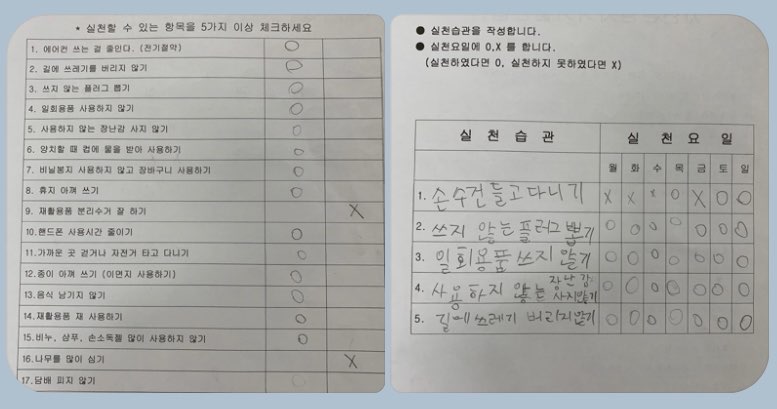 * 실천할 수 있는 항목을 5가지 이상 체크하세요
1. 에어컨 쓰는 걸 줄인다. (전기절약) O
2. 길에 쓰레기를 버리지 않기 O
3. 쓰지 않는 플러그 뽑기 O
4. 일회용품 사용하지 않기 O
5. 사용하지 않는 장난감 사지 않기 O
6. 양치할 때 컵에 물을 받아 사용하기 O
7. 비닐봉지 사용하지 않고 장바구니 사용하기 O
8. 휴지 아껴 쓰기 O
9. 재활용품 분리수거 잘 하기 X
10.핸드폰 사용시간 줄이기 O
11.가까운 곳 걷거나 자전거 타고 다니기 O
12.종이 아껴 쓰기 (이면지 사용하기) O
13.음식 남기지 않기 O
14.재활용품 재 사용하기 O
15.비누, 샴푸, 손소독젤 많이 사용하지 않기 O
16.나무를 많이 심기 X
17.담배 피지 않기 O
● 실천습관을 작성합니다.
● 실천요일에 O,X 를 합니다.
(실천하였다면 O, 실천하지 못하였다면 X)
실 천 습 관 실 천 요 일
월 화 수 목 금 토 일
1. 손수건 들고 다니기 X X X O X O O
2. 쓰지 않는 플러그 뽑기 O O O O O O O
3. 일회용품 쓰지 않기 O O O O O O O
4. 사용하지 않는 장난감 사지않기 O O O O O O O
5. 길에 쓰레기 버리지않기 O O O O O O O